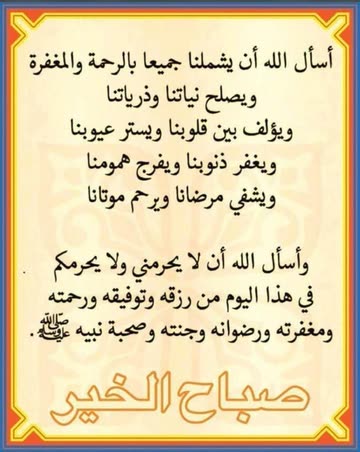 أسأل الله أن يشملنا جميعا بالرحمة والمغفرة
ويصلح نياتنا وذرياتنا
ويؤلف بين قلوبنا ويستر عيوبنا
ويغفر ذنوبنا ويفرج همومنا
ويشفي مرضانا ويرحم موتانا
وأسأل الله أن لا يحرمني ولا يحرمكم
في هذا اليوم من رزقه وتوفيقه ورحمته
ومغفرته ورضوانه وجنته وصحبة نبيه ﷺ.
صباح الخير